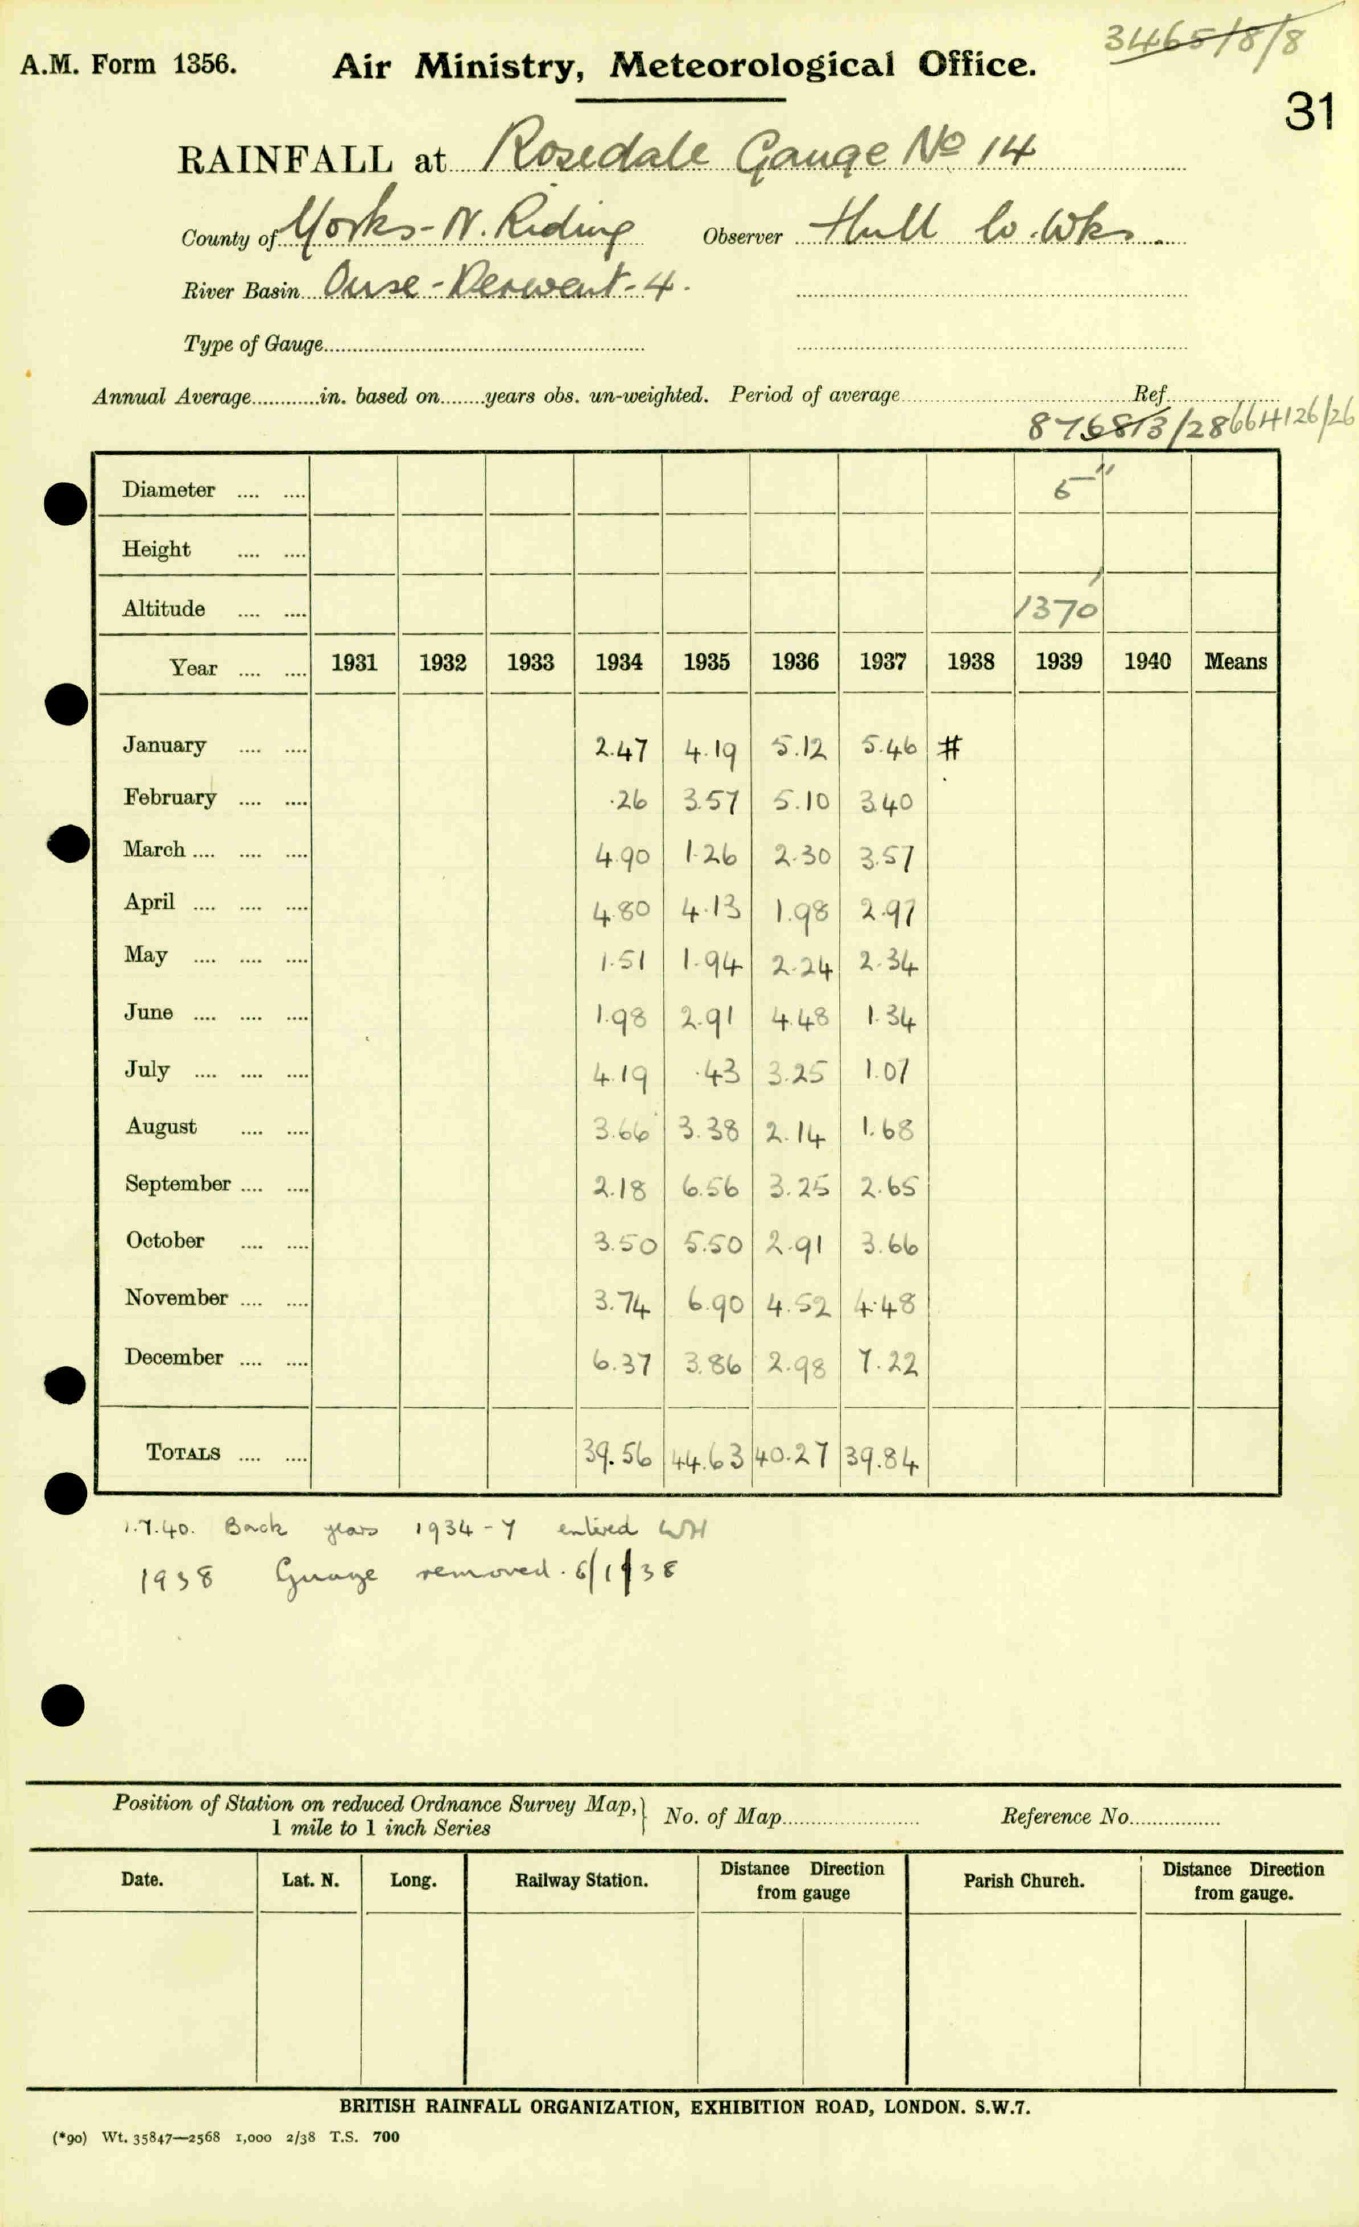 3465/8/8
A.M. Form 1356. Air Ministry, Meteorological Office.
31
RAINFALL at Rosedale Gauge No 14
County of Yorks - N. Riding Observer Hull Co. Wks.
River Basin Ouse - Derwent - 4.
Type of Gauge
Annual Average in. based on years obs. un-weighted. Period of average Ref.
876813/28 664126/26
Diameter 5"
Height
Altitude 1370'
Year 1931 1932 1933 1934 1935 1936 1937 1938 1939 1940 Means
January 2.47 4.19 5.12 5.46 #
February .26 3.57 5.10 3.40
March 4.90 1.26 2.30 3.57
April 4.80 4.13 1.98 2.97
May 1.51 1.94 2.24 2.34
June 1.98 2.91 4.48 1.34
July 4.19 .43 3.25 1.07
August 3.66 3.38 2.14 1.68
September 2.18 6.56 3.25 2.65
October 3.50 5.50 2.91 3.66
November 3.74 6.90 4.52 4.48
December 6.37 3.86 2.98 7.22
TOTALS 39.56 44.63 40.27 39.84
1.7.40. Back years 1934-7 entered WH
1938 Guage removed. 6/1/38
Position of Station on reduced Ordnance Survey Map, 1 mile to 1 inch Series } No. of Map Reference No.
Date. Lat. N. Long. Railway Station. Distance Direction from gauge Parish Church. Distance Direction from gauge.
BRITISH RAINFALL ORGANIZATION, EXHIBITION ROAD, LONDON. S.W.7.
(*90) Wt. 35847—2568 1,000 2/38 T.S. 700